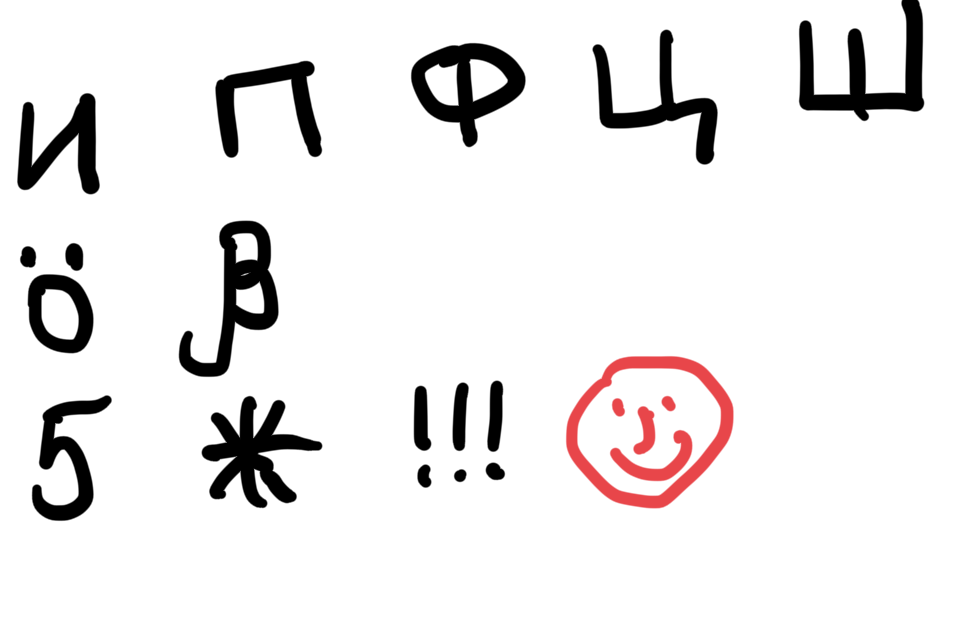 И П Ф Ц Ш
ö ß
5 * !!!